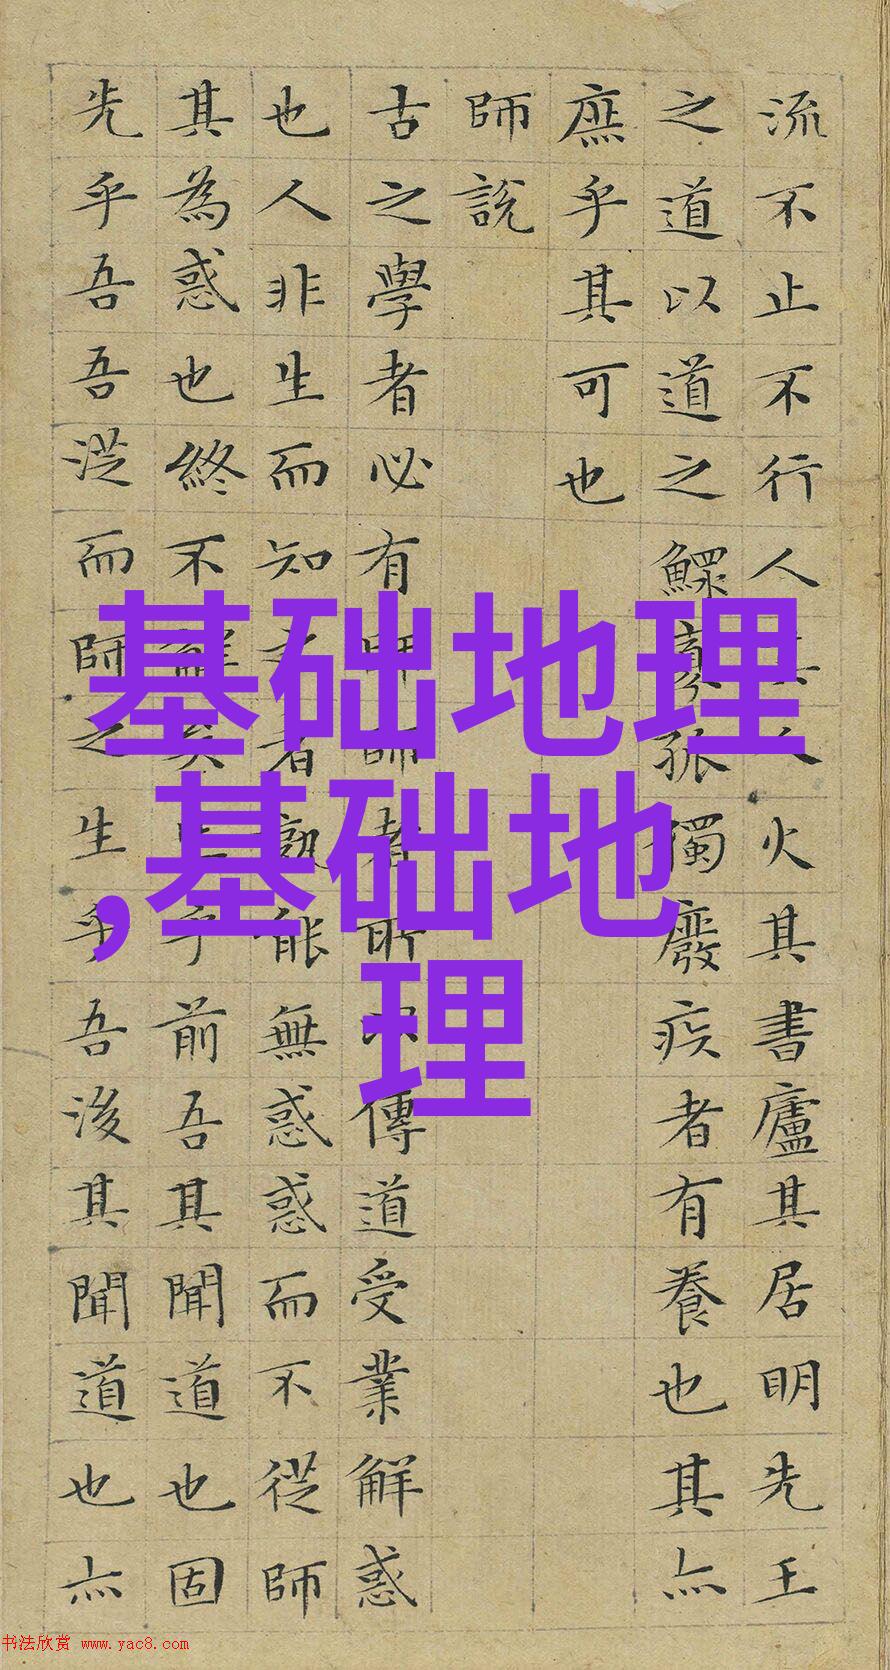 流不止不行人其人火其書廬其居明先王
之道以道之鰥寡孤獨廢疾者有養也其亦
庶乎其可也
師說
古之學者必有師師者所以傳道受業解惑
也人非生而知之者孰能無惑惑而不從師
其為惑也終不解矣生乎前吾其聞道也固
先乎吾吾從而師之生乎吾後其聞道也亦
基础地理
,基础地
理
书法欣赏 www.yac8.com